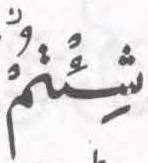 شِئْتُمْ